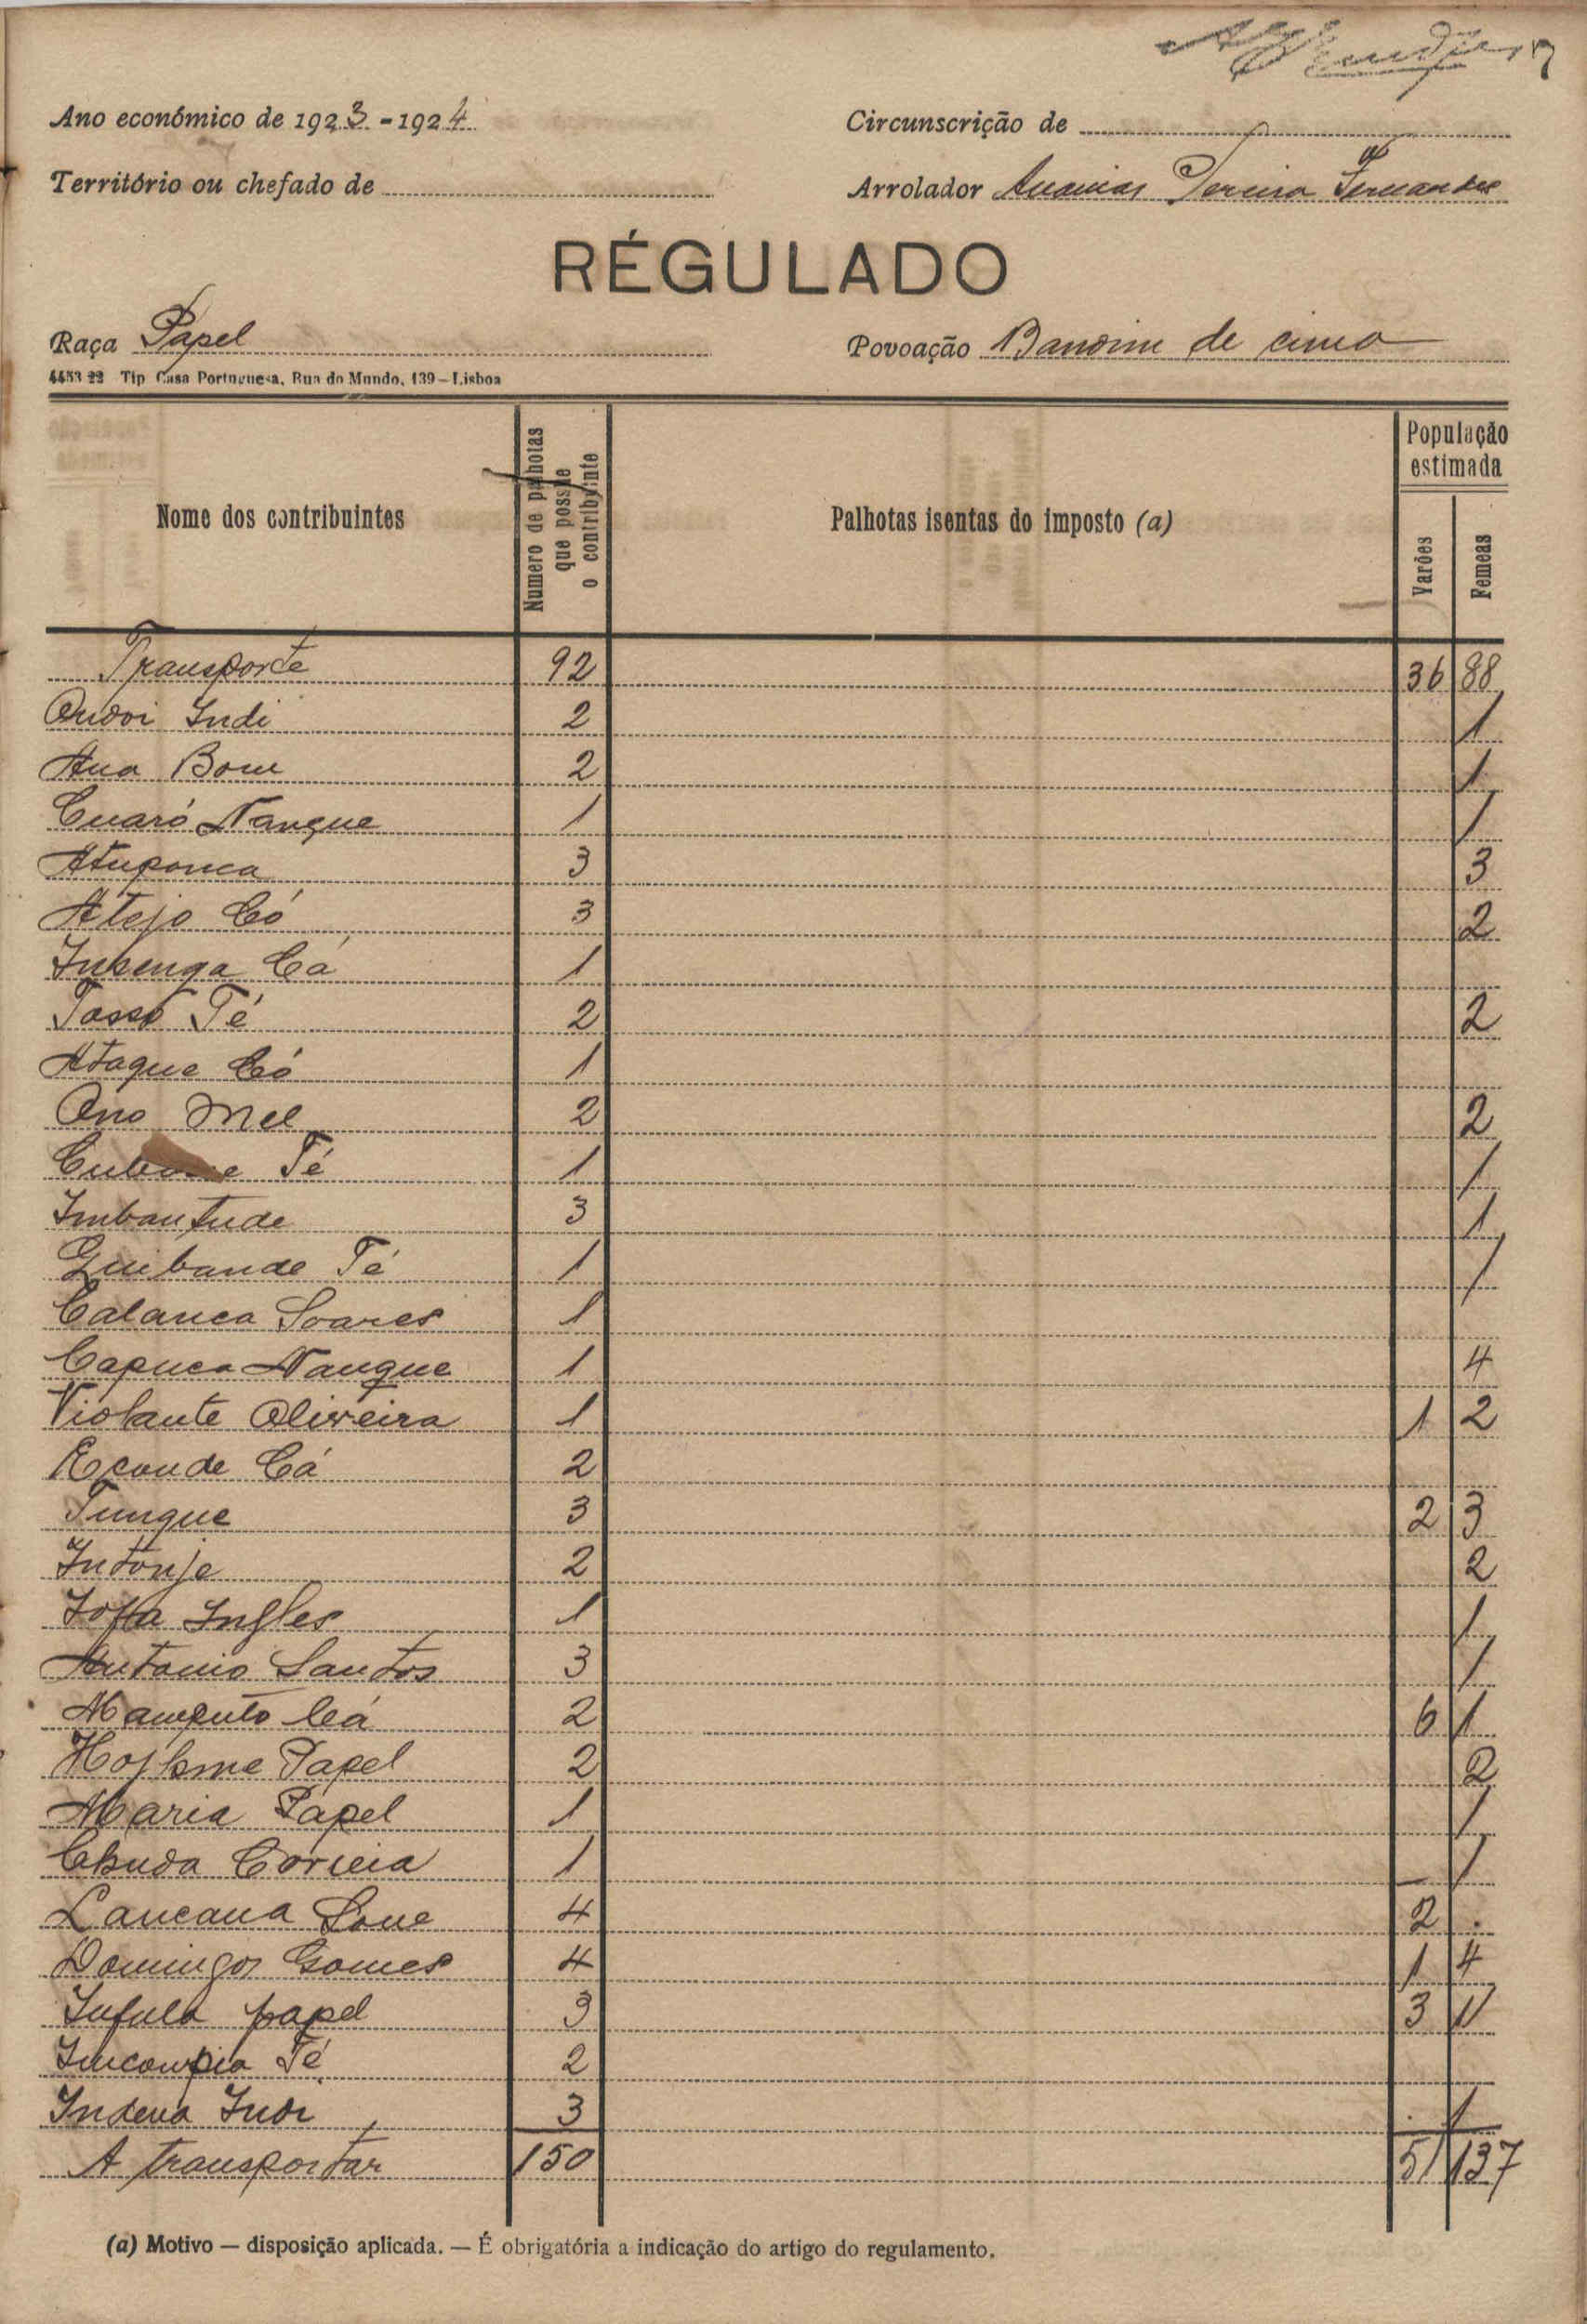 Ano económico de 1923-1924
Circunscrição de
Território ou chefado de
Arrolador Ananias Pereira Fernandes
RÉGULADO
Raça Papel
Povoação Bandim de cima
4453 22 Tip Casa Portuguesa, Rua do Mundo, 139-Lisboa
Nome dos contribuintes
Numero de palhotas que possue o contribuinte
Palhotas isentas do imposto (a)
População estimada
Varões
Femeas
Transporte 92 36 88
Ondoi Indi 2 1
Ana Bom 2 1
Cuaró Nanque 1 1
Atuponca 3 3
Atejo Có 3 2
Insenga Cá 1
Tasso Té 2 2
Ataque Có 1
Ono Mel 2 2
Té 1 1
Imbantude 3 1
Quibande Té 1 1
Calanca Soares 1
Capuca Nanque 1 4
Violante Oliveira 1 1 2
Econde Cá 2
Tungue 3 2 3
Intonje 2 2
Ingles 1 1
Antonio Santos 3 1
Mamputo Cá 2 6 1
Papel 2 2
Maria Papel 1 1
Correia 1 1
Lancana 4 2
Domingos Gomes 4 1 4
Infula papel 3 3 11
Incompia Té 2
Indena Indi 3 1
A transportar 150 51 137
(a) Motivo — disposição aplicada. — É obrigatória a indicação do artigo do regulamento.